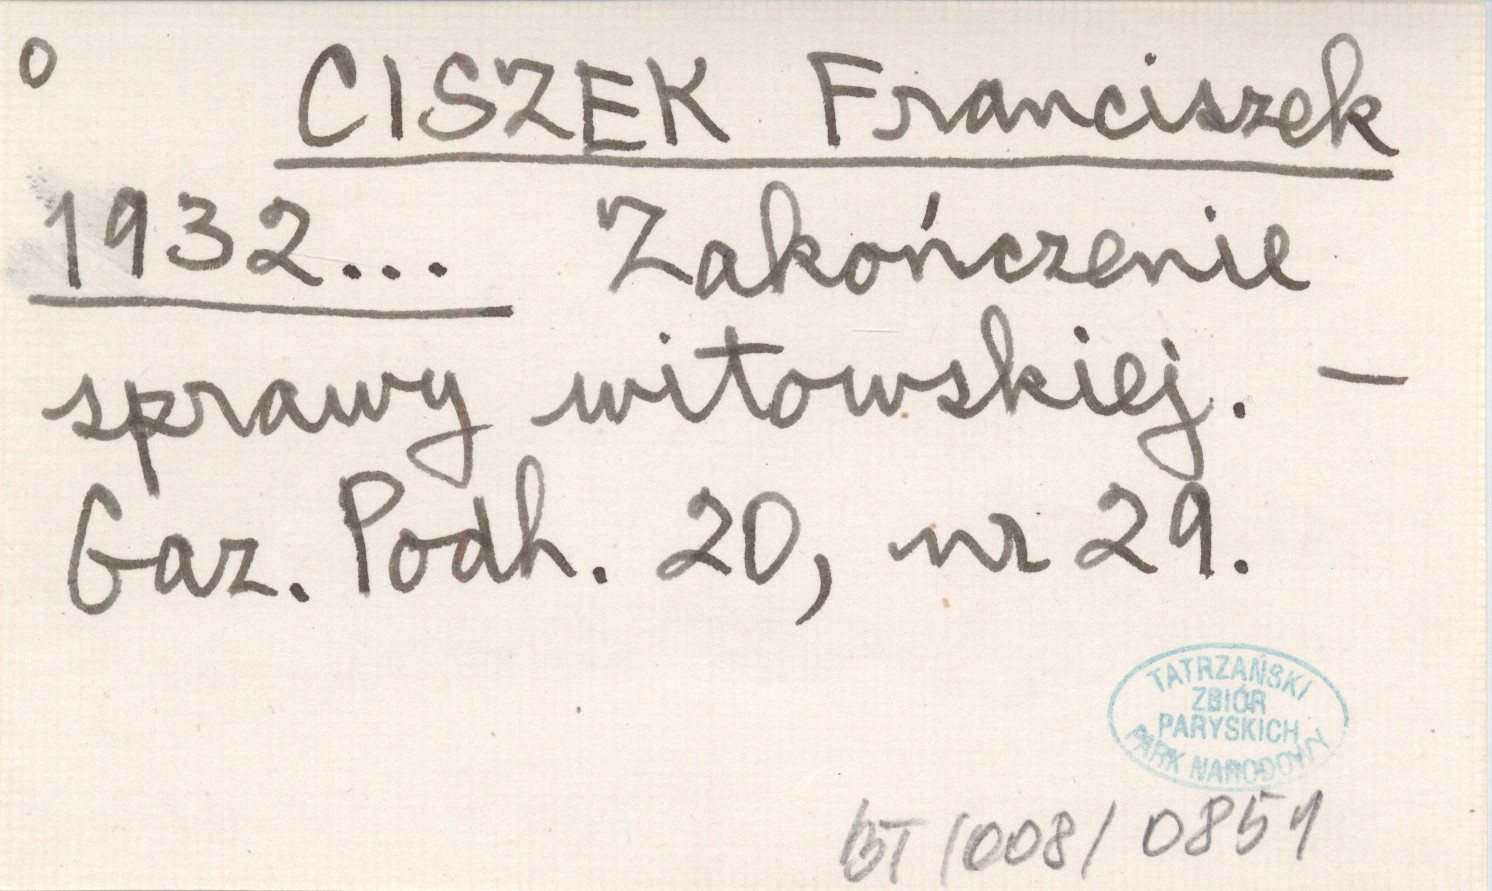 o CISZEK Franciszek
1932... Zakończenie
sprawy witowskiej. —
Gaz. Podh. 20, nr 29.
TATRZAŃSKI
ZBIÓR
PARYSKICH
PARK NARODOWY
BT/008/0851